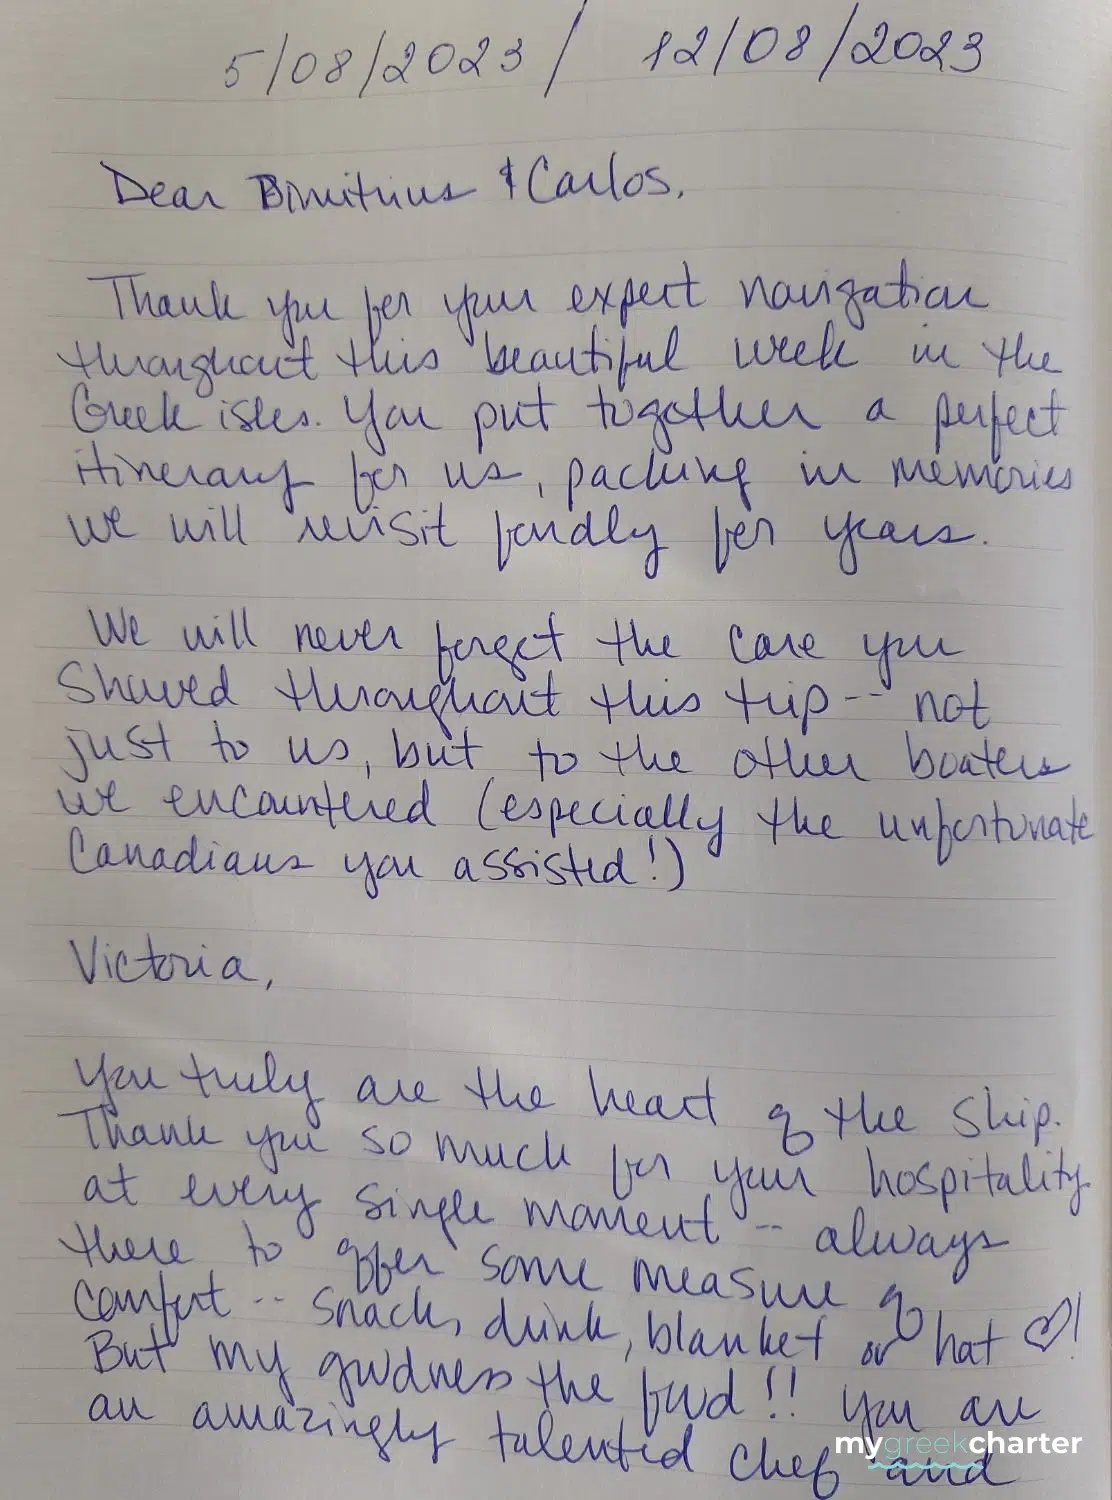 5/08/2023 / 12/08/2023
Dear Dimitrius & Carlos,
Thank you for your expert navigation
throughout this beautiful week in the
Greek isles. You put together a perfect
itinerary for us, packing in memories
we will revisit fondly for years.
We will never forget the care you
showed throughout this trip -- not
just to us, but to the other boaters
we encountered (especially the unfortunate
Canadians you assisted!)
Victoria,
You truly are the heart of the ship.
Thank you so much for your hospitality
at every single moment -- always
there to offer some measure of
comfort -- snack, drink, blanket or hat ♡!
But my goodness the food!! You are
an amazingly talented chef and
mygreekcharter